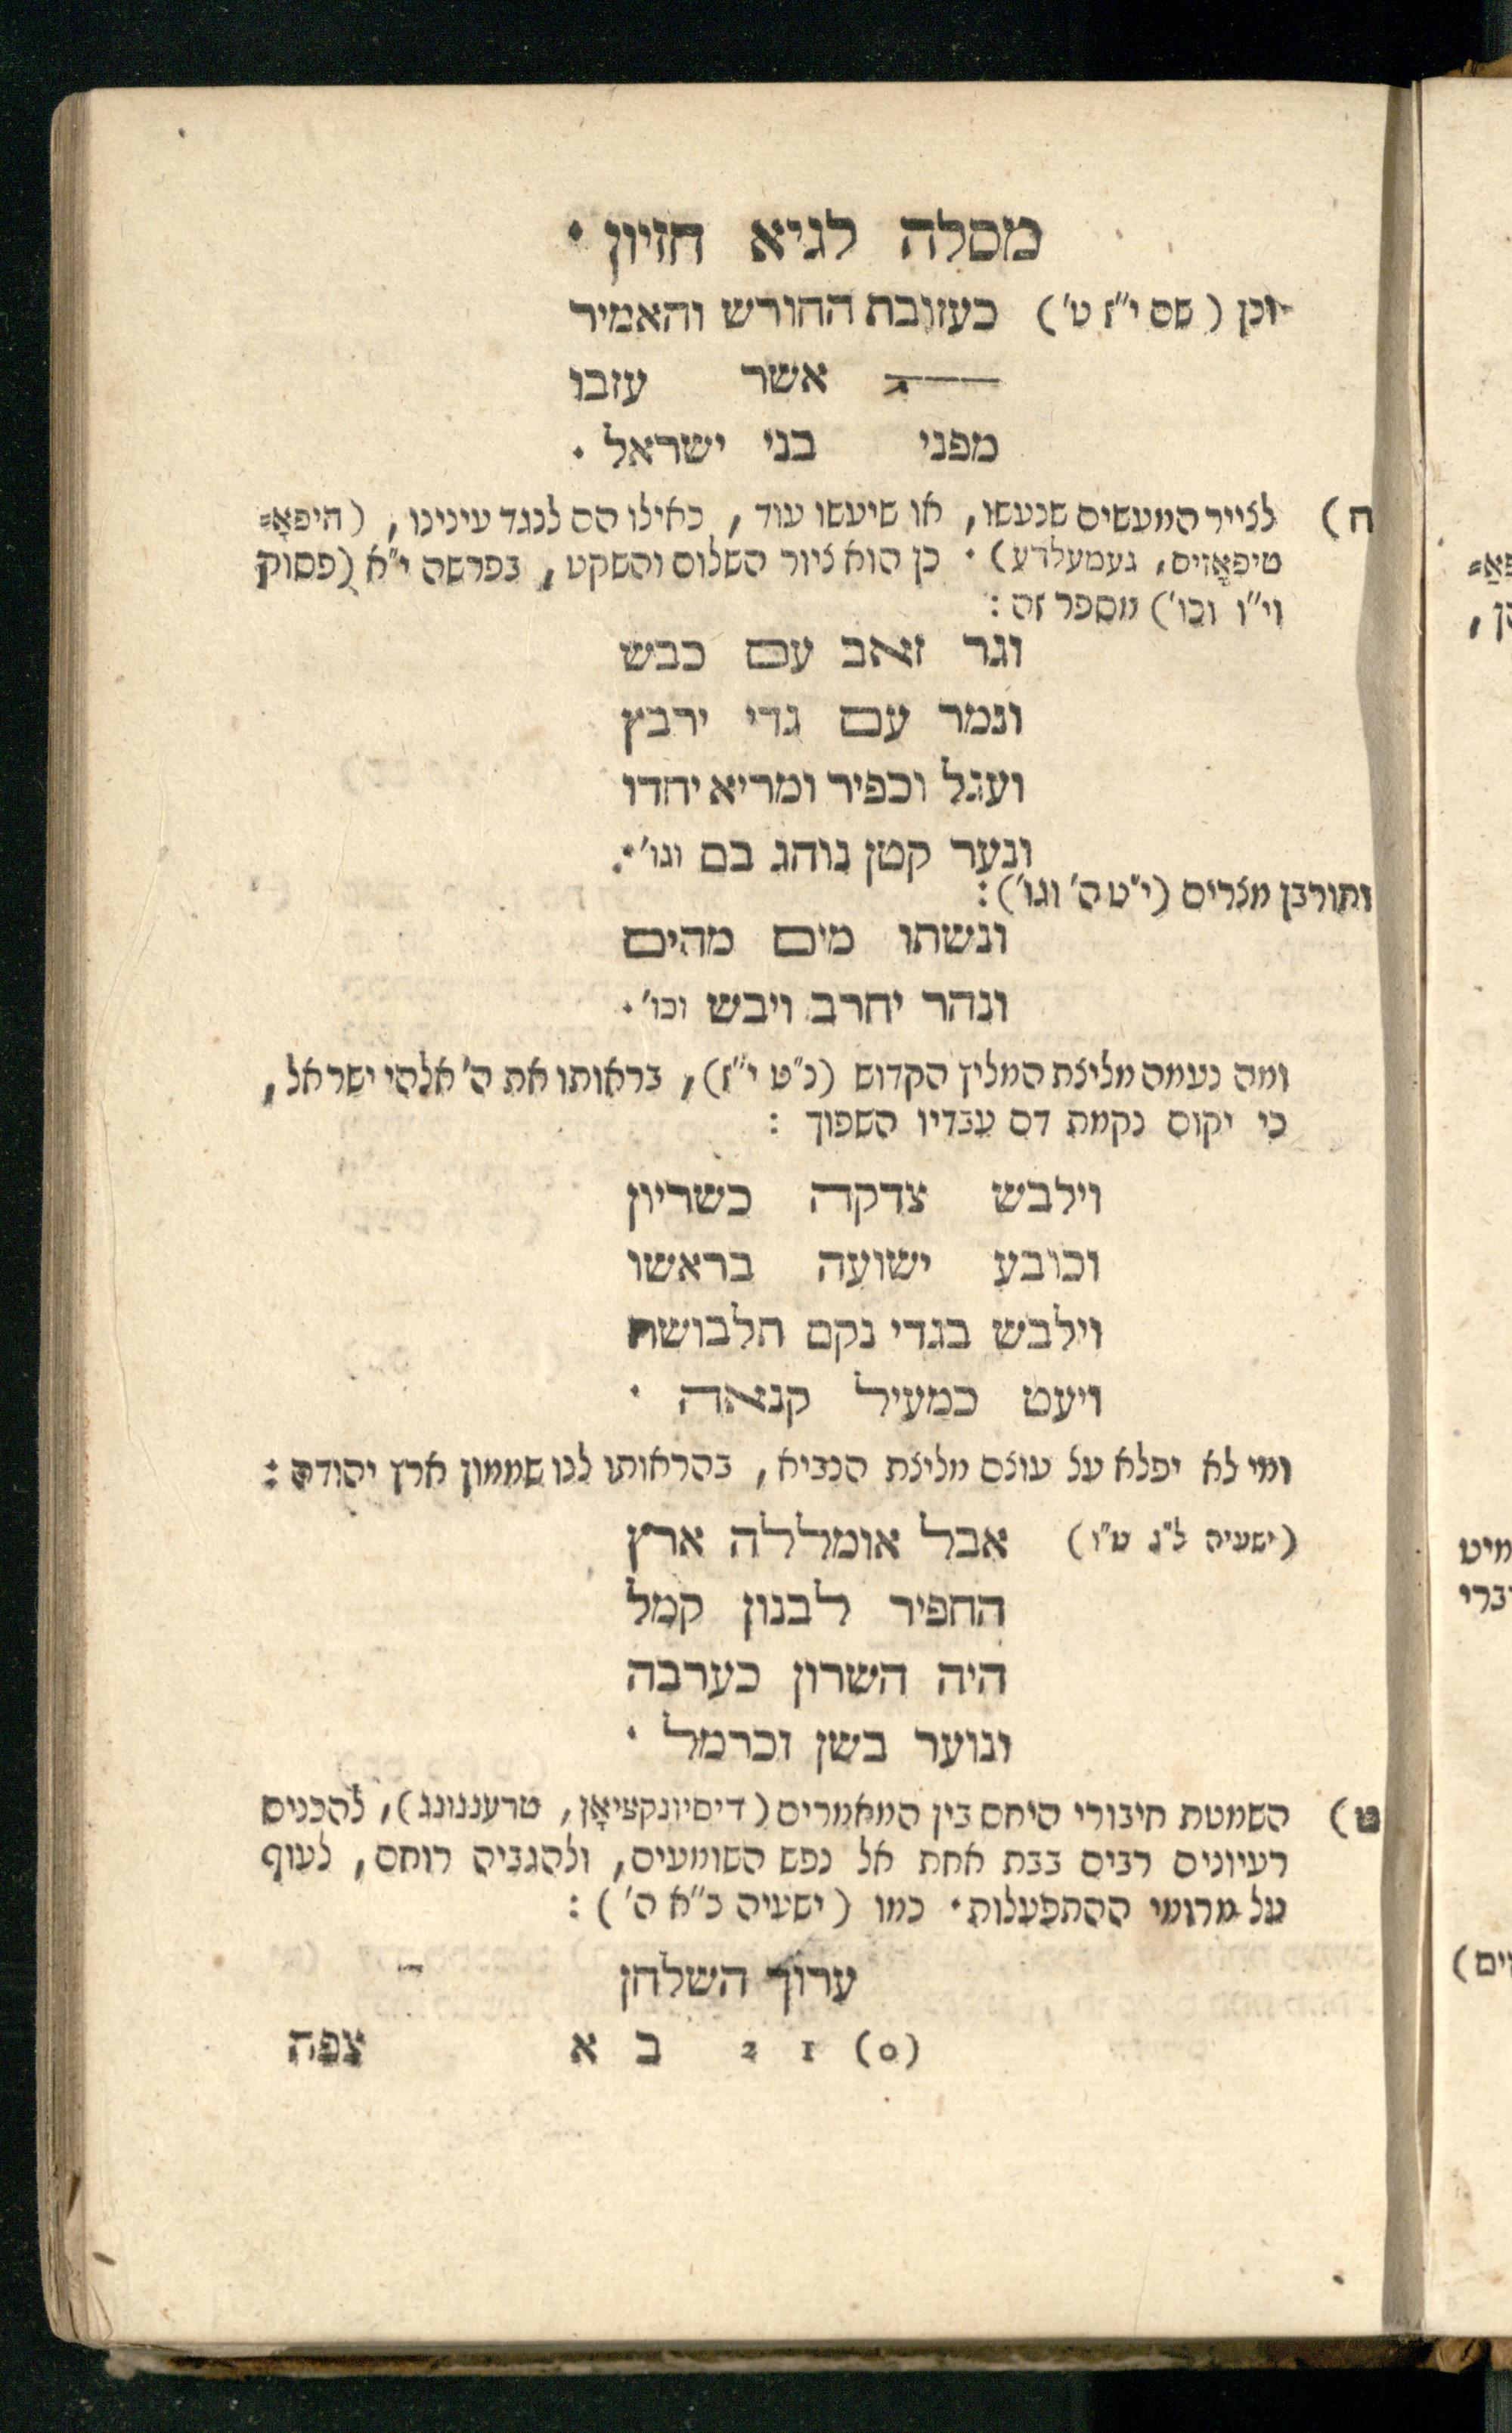 מסלה לגיא חזיון •
וכן (שם י"ז ט') כעזובת החורש והאמיר
אשר עזבו
מפני בני ישראל •
ח) לצייר המעשים שנעשו, או שיעשו עוד, כאילו הם לנגד עינינו, (היפאָ=
טיפאָזיס, געמעלדע) • כן הוא ציור השלום והשקט, בפרשה י"א (פסוק
וי"ו וכו') מספר זה :
וגר זאב עם כבש
ונמר עם גדי ירבץ
ועגל וכפיר ומריא יחדו
ונער קטן נוהג בם וגו' •
וחורבן מצרים (י"ט ה' וגו') :
ונשתו מים מהים
ונהר יחרב ויבש וכו' •
ומה נעמה מליצת המליץ הקדוש (נ"ט י"ז), בראותו את ה' אלהי ישראל,
כי יקום נקמת דם עבדיו השפוך :
וילבש צדקה כשריון
וכובע ישועה בראשו
וילבש בגדי נקם תלבושת
ויעט כמעיל קנאה •
ומי לא יפלא על עוצם מליצת הנביא, בהראותו לנו שממון ארץ יהודה :
(ישעיה ל"ג ט"ו) אבל אומללה ארץ
החפיר לבנון קמל
היה השרון כערבה
ונוער בשן וכרמל •
ט) השמטת חיבורי היחס בין המאמרים (דיסיונקציאָן, טרעננונג), להכניס
רעיונים רבים בבת אחת אל נפש השומעים, ולהגביה רוחם, לעוף
על מרומי ההתפעלות • כמו (ישעיה כ"א ה') :
ערוך השלחן
(o) 1 2 ב א צפה